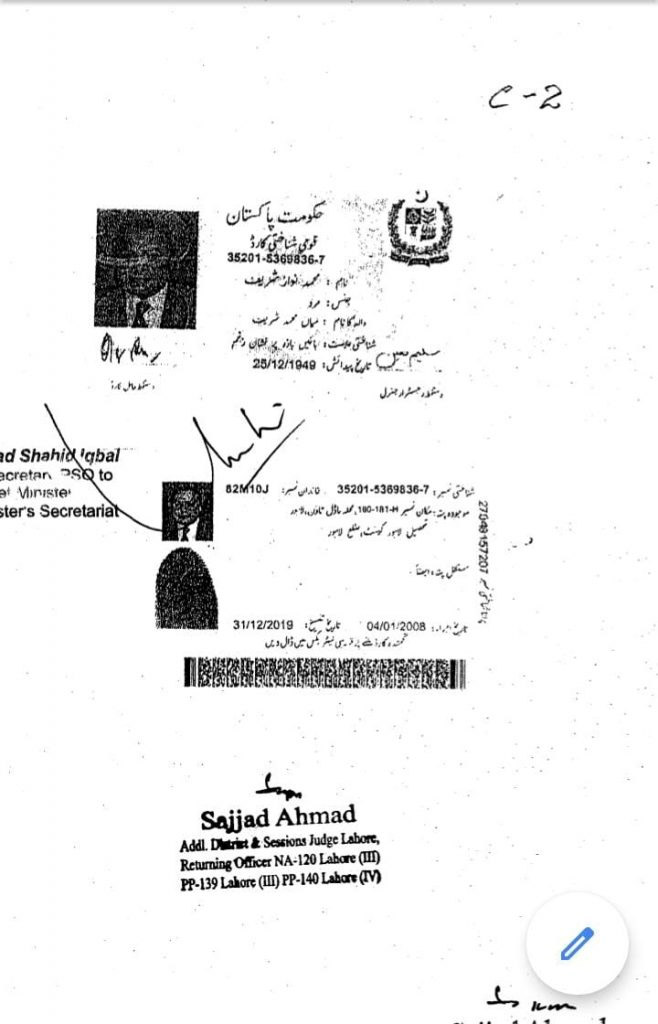 C-2
حکومت پاکستان
قومی شناختی کارڈ
35201-5369836-7
نام: محمد نواز شریف
جنس: مرد
والد کا نام: میاں محمد شریف
شناختی علامت: بائیں بازو پر نشان زخم
تاریخ پیدائش: 25/12/1949
دستخط حامل کارڈ
دستخط رجسٹرار جنرل
ad Shahid Iqbal
PSO to
Minister
ster's Secretariat
شناختی نمبر: 35201-5369836-7 خاندان نمبر: 82M10J
موجودہ پتہ: مکان نمبر 180-181-H، محلہ ماڈل ٹاؤن، لاہور
تحصیل لاہور کینٹ، ضلع لاہور
مستقل پتہ: ایضاً
27048157207
تاریخ اجراء: 04/01/2008 تاریخ تنسیخ: 31/12/2019
گمشدہ کارڈ ملنے پر قریبی لیٹر بکس میں ڈال دیں
Sajjad Ahmad
Addl. District & Sessions Judge Lahore,
Returning Officer NA-120 Lahore (III)
PP-139 Lahore (III) PP-140 Lahore (IV)